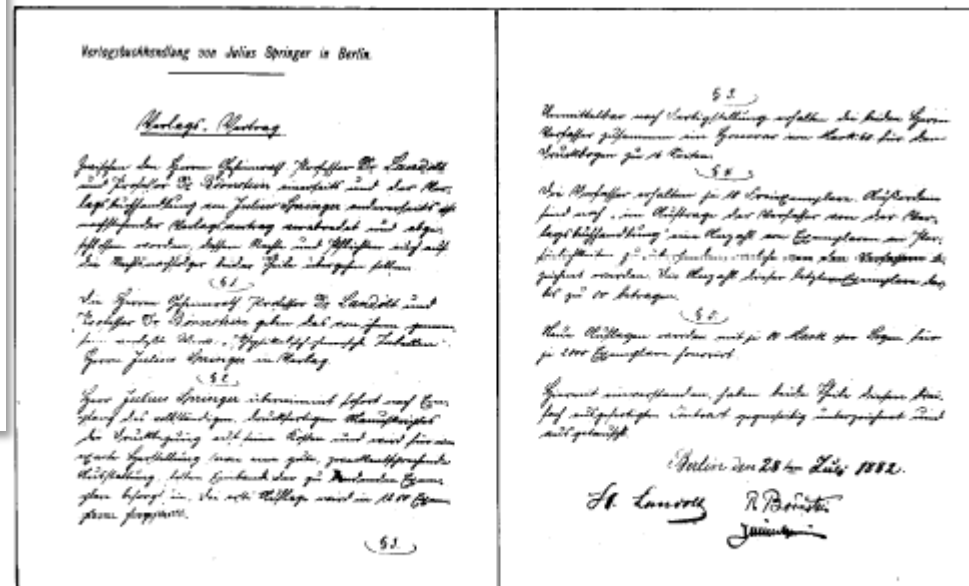 Verlagsbuchhandlung von Julius Springer in Berlin.
Verlags-Vertrag
Zwischen den Herren Geheimrath Professor Dr. Landolt
und Professor Dr. Börnstein einerseits und der Ver-
lagsbuchhandlung von Julius Springer andererseits ist
nachstehender Verlagsvertrag verabredet und abge-
schlossen worden, dessen Rechte und Pflichten auch auf
die Rechtsnachfolger beider Theile übergehen sollen.
§ 1.
Die Herren Geheimrath Professor Dr. Landolt und
Professor Dr. Börnstein geben das von ihnen gemein-
verfaßte Werk: "Physikalisch-chemische Tabellen"
Herrn Julius Springer in Verlag.
§ 2.
Herr Julius Springer übernimmt sofort nach Em-
pfang des vollständigen, druckfertigen Manuskriptes
die Drucklegung auf seine Kosten und wird für
Herstellung, gute, zweckentsprechende
Ausstattung,
Die erste Auflage wird in
§ 3.
§ 3.
Unmittelbar nach Fertigstellung erhalten die beiden Herren
Verfasser zusammen ein Honorar von Mark 60 für den
Druckbogen zu 16 Seiten.
§ 4.
Die Verfasser erhalten je Freiexemplare. Außerdem
sind noch, im Auftrage der Verfasser von der Ver-
lagsbuchhandlung eine Anzahl von Exemplaren an Per-
sönlichkeiten zu übersenden, welche von den Verfassern be-
zeichnet werden. Die Anzahl dieser letzten Exemplare
bis zu betragen.
§ 5.
Neue Auflagen werden mit je Mark pro Bogen für
je 2000 Exemplare honorirt.
Hiermit einverstanden, haben beide Theile diesen
fach ausgefertigten Contract gegenseitig unterzeichnet und
ausgetauscht.
Berlin den 28ten Juli 1882.
H. Landolt R. Börnstein